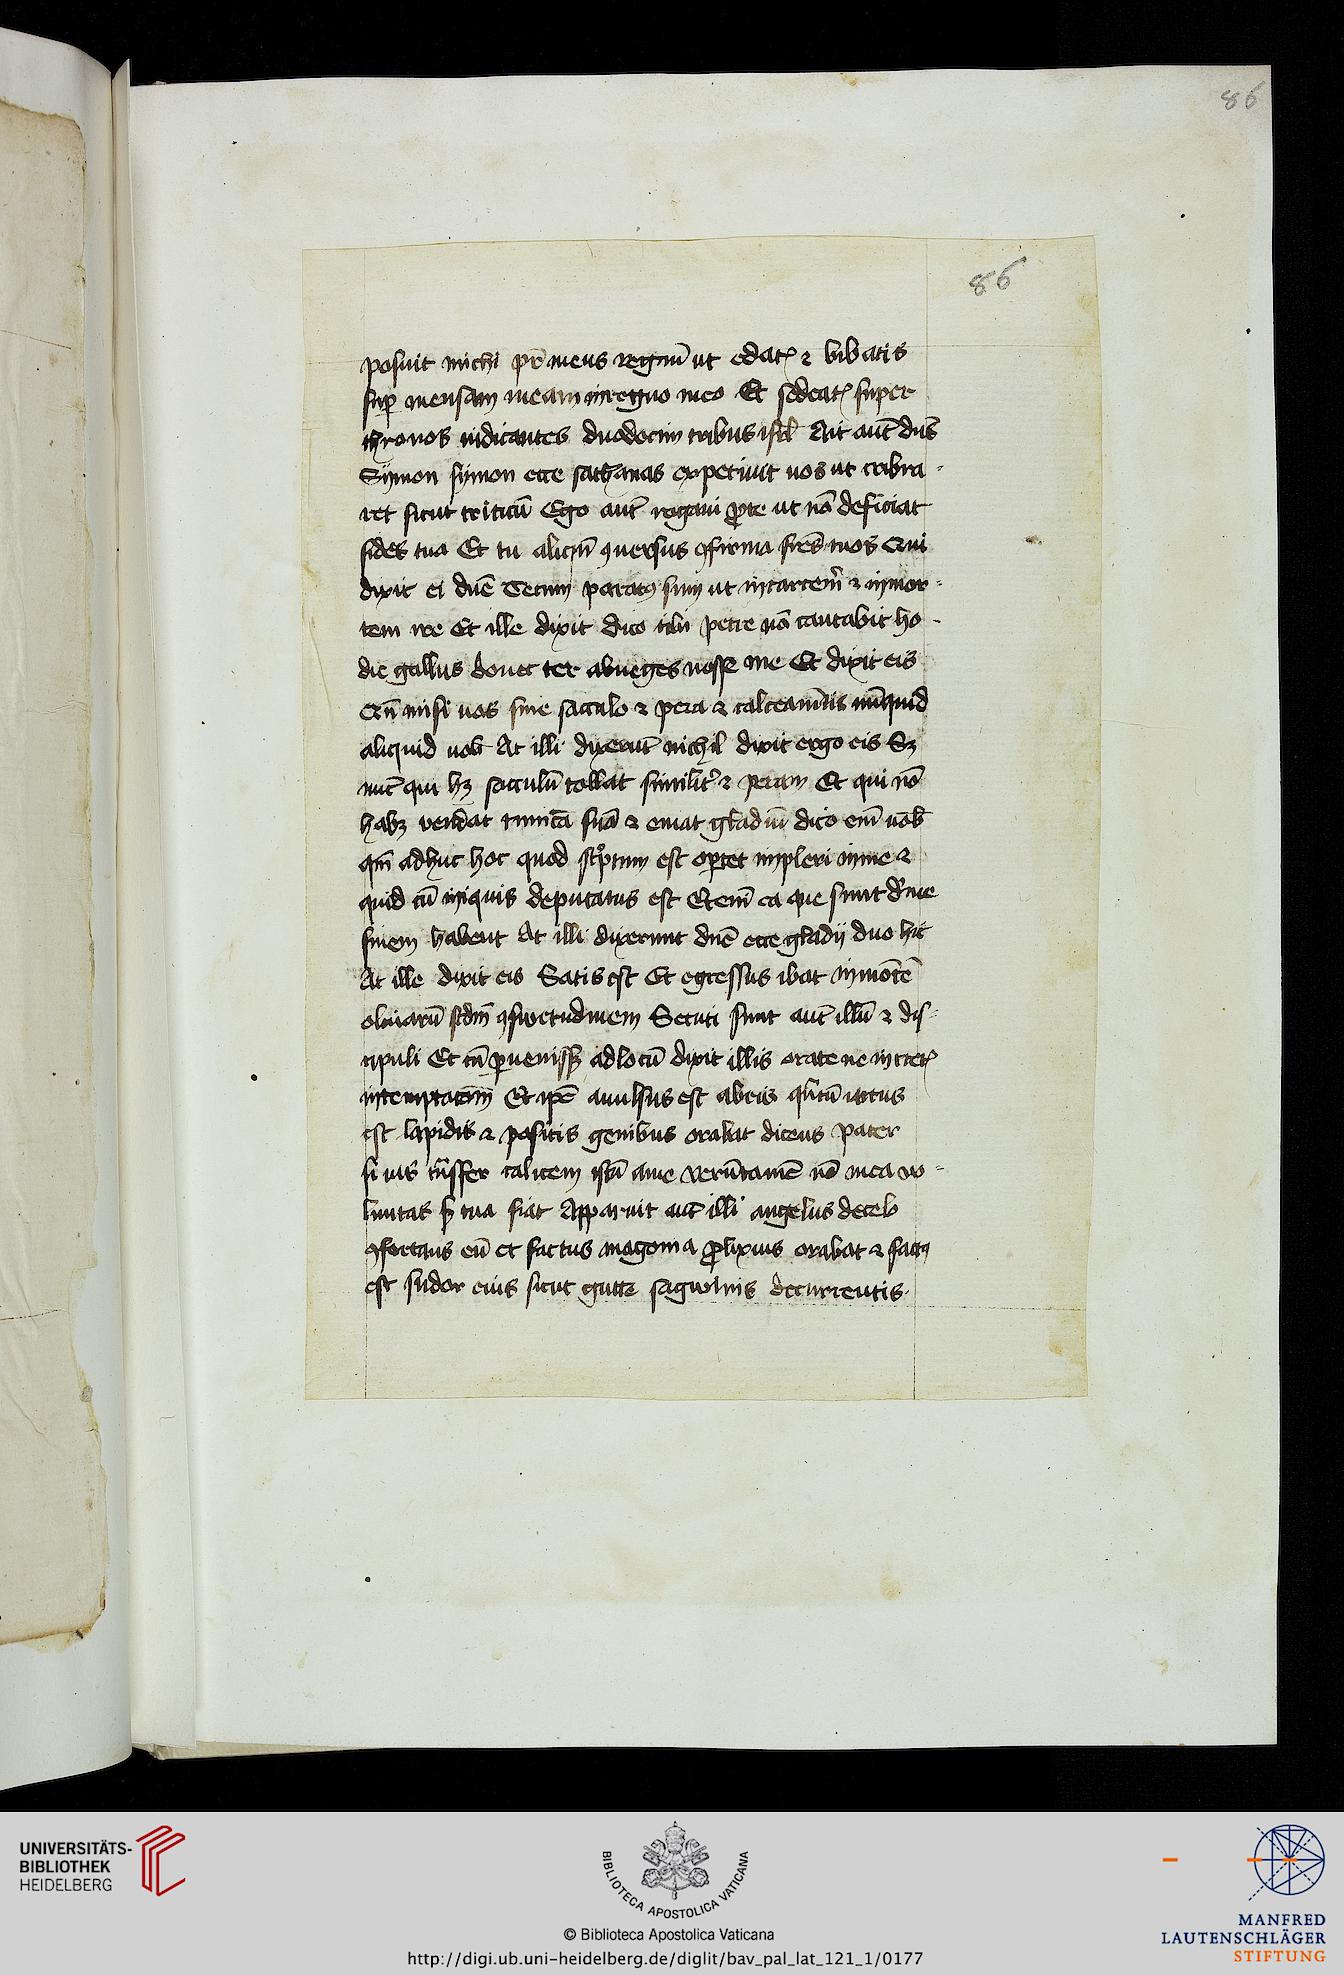 86
86
posuit michi pr̄ meus regnū ut edatꝭ ⁊ bibatis
suꝑ mensam meam in regno meo Et sedeatꝭ super
thronos iudicantes duodecim tribus isrl̄ Ait aut̄ dn̄s
Sÿmon sÿmon ecce sathanas expetiuit uos ut cribra-
ret sicut triticū Ego aut̄ rogaui ꝓ te ut nō deficiat
fides tua Et tu aliqn̄ ꝯuersus ꝯfirma fr̄es tuos Qui
dixit ei dn̄e Tecum paratꝰ sum ut in carcem̄ ⁊ in mor-
tem ire Et ille dixit Dico tibi petre nō cantabit ho-
die gallus donec ter abneges nosse me Et dixit eis
Qn̄ misi uos sine sacculo ⁊ pera ⁊ calceamn̄tis nūquid
aliquid uob̄ At illi dixerūt nichil dixit ergo eis Sꝫ
nūc qui hꝫ sacculū tollat similit̄ ⁊ peram Et qui nō
habꝫ vendat tunicā suā ⁊ emat gladiū dico em̄ uob̄
qm̄ adhuc hoc quod sc̄ptum est oꝑtet impleri in me ⁊
quid cū iniquis deputatus est Etem̄ ea que sunt d̄ me
finem habent At illi dixerunt dn̄e ecce gladij duo hic
At ille dixit eis Satis est Et egressus ibat in mōtē
oliuarū scdm̄ ꝯswetudinem Secuti sunt aut̄ illū ⁊ dis-
cipuli Et cū ꝑuenissꝫ ad locū dixit illis orate ne intretꝭ
in temptacōm̄ Et ip̄e auulsus est ab eis qn̄tū iactus
est lapidis ⁊ positis genibus orabat dicens pater
si uis trn̄sfer calicem istū a me verūtamē nō mea vo-
luntas sꝫ tua fiat Apparuit aut̄ illi angelus de celo
ꝯfortans eū et factus in agonia ꝓlixius orabat ⁊ factꝰ
est sudor eius sicut gutte sagwinis decurrentis.
UNIVERSITÄTS-
BIBLIOTHEK
HEIDELBERG
BIBLIOTECA APOSTOLICA VATICANA
© Biblioteca Apostolica Vaticana
http://digi.ub.uni-heidelberg.de/diglit/bav_pal_lat_121_1/0177
MANFRED
LAUTENSCHLÄGER
STIFTUNG